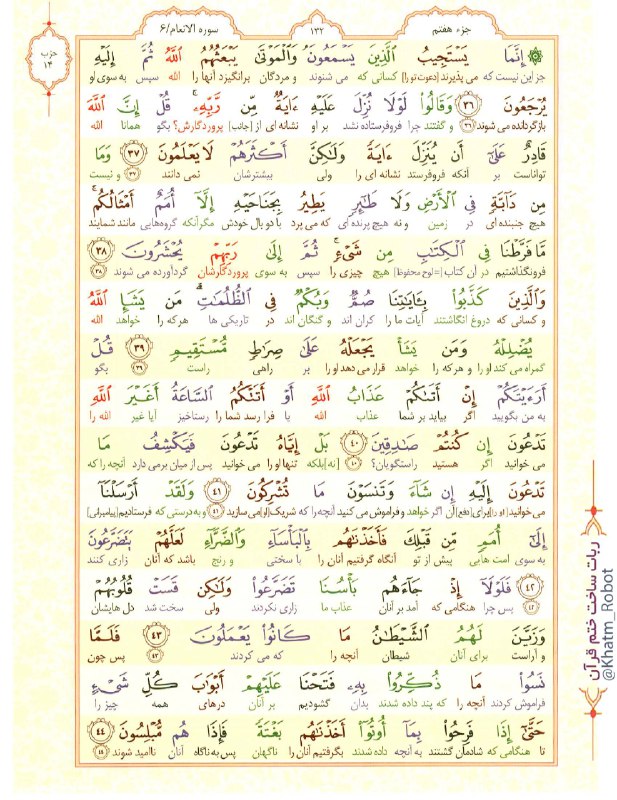 جزء هفتم
۱۳۲
سوره الانعام/۶
حزب
۱۴
إِنَّمَا يَسْتَجِيبُ الَّذِينَ يَسْمَعُونَ وَالْمَوْتَىٰ يَبْعَثُهُمُ اللَّهُ ثُمَّ إِلَيْهِ
جز این نیست که می پذیرند [دعوت تو را] کسانی که می شنوند و مردگان برانگیزد آنها را الله سپس به سوی او
يُرْجَعُونَ ۳۶ وَقَالُوا لَوْلَا نُزِّلَ عَلَيْهِ ءَايَةٌ مِّن رَّبِّهِ قُلْ إِنَّ اللَّهَ
بازگردانده می شوند ۳۶ و گفتند چرا فروفرستاده نشد بر او نشانه ای از [جانب] پروردگارش؟ بگو همانا الله
قَادِرٌ عَلَىٰ أَن يُنَزِّلَ ءَايَةً وَلَٰكِنَّ أَكْثَرَهُمْ لَا يَعْلَمُونَ ۳۷ وَمَا
تواناست بر آنکه فروفرستد نشانه ای را ولی بیشترشان نمی دانند ۳۷ و نیست
مِن دَابَّةٍ فِي الْأَرْضِ وَلَا طَائِرٍ يَطِيرُ بِجَنَاحَيْهِ إِلَّا أُمَمٌ أَمْثَالُكُم
هیچ جنبنده ای در زمین و نه هیچ پرنده ای که می پرد با دو بال خودش مگر آنکه گروه‌هایی مانند شمایند
مَّا فَرَّطْنَا فِي الْكِتَابِ مِن شَيْءٍ ثُمَّ إِلَىٰ رَبِّهِمْ يُحْشَرُونَ ۳۸
فروگذاشتیم در آن کتاب [=لوح محفوظ] هیچ چیزی را سپس به سوی پروردگارشان گردآورده می شوند ۳۸
وَالَّذِينَ كَذَّبُوا بِـَٔايَاتِنَا صُمٌّ وَبُكْمٌ فِي الظُّلُمَاتِ مَن يَشَإِ اللَّهُ
و کسانی که دروغ انگاشتند آیات ما را کران اند و گنگان اند در تاریکی ها هر که را خواهد الله
يُضْلِلْهُ وَمَن يَشَأْ يَجْعَلْهُ عَلَىٰ صِرَاطٍ مُّسْتَقِيمٍ ۳۹ قُلْ
گمراه می کند او را و هر که را خواهد قرار می دهد او را بر راهی راست ۳۹ بگو
أَرَءَيْتَكُمْ إِنْ أَتَىٰكُمْ عَذَابُ اللَّهِ أَوْ أَتَتْكُمُ السَّاعَةُ أَغَيْرَ اللَّهِ
به من بگویید اگر بیاید بر شما عذاب الله یا فرا رسد شما را رستاخیز آیا غیر الله را
تَدْعُونَ إِن كُنتُمْ صَادِقِينَ ۴۰ بَلْ إِيَّاهُ تَدْعُونَ فَيَكْشِفُ مَا
می خوانید اگر هستید راستگویان؟ ۴۰ [نه] بلکه تنها او را می خوانید پس از میان برمی دارد آنچه را که
تَدْعُونَ إِلَيْهِ إِن شَاءَ وَتَنسَوْنَ مَا تُشْرِكُونَ ۴۱ وَلَقَدْ أَرْسَلْنَا
می خوانید [او را] برای [دفع] آن اگر خواهد و فراموش می کنید آنچه را که شریک [او] می سازید ۴۱ و به درستی که فرستادیم [پیامبرانی]
إِلَىٰ أُمَمٍ مِّن قَبْلِكَ فَأَخَذْنَاهُم بِالْبَأْسَاءِ وَالضَّرَّاءِ لَعَلَّهُمْ يَتَضَرَّعُونَ
به سوی امت هایی پیش از تو آنگاه گرفتیم آنان را با سختی و رنج باشد که آنان زاری کنند
۴۲ فَلَوْلَا إِذْ جَاءَهُم بَأْسُنَا تَضَرَّعُوا وَلَٰكِن قَسَتْ قُلُوبُهُمْ
۴۲ پس چرا هنگامی که آمد بر آنان عذاب ما زاری نکردند ولی سخت شد دل هایشان
وَزَيَّنَ لَهُمُ الشَّيْطَانُ مَا كَانُوا يَعْمَلُونَ ۴۳ فَلَمَّا
و آراست برای آنان شیطان آنچه را که می کردند ۴۳ پس چون
نَسُوا مَا ذُكِّرُوا بِهِ فَتَحْنَا عَلَيْهِمْ أَبْوَابَ كُلِّ شَيْءٍ
فراموش کردند آنچه را که پند داده شدند بدان گشودیم بر آنان درهای همه چیز را
حَتَّىٰ إِذَا فَرِحُوا بِمَا أُوتُوا أَخَذْنَاهُم بَغْتَةً فَإِذَا هُم مُّبْلِسُونَ ۴۴
تا هنگامی که شادمان گشتند به آنچه داده شدند بگرفتیم آنان را ناگهان پس به ناگاه آنان ناامید شوند ۴۴
ربات ساخت ختم قرآن
@Khatm_Robot